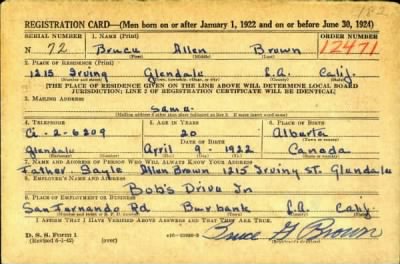 182
REGISTRATION CARD—(Men born on or after January 1, 1922 and on or before June 30, 1924)
SERIAL NUMBER 1. NAME (Print) ORDER NUMBER
N 72 Bruce Allen Brown 12471
2. PLACE OF RESIDENCE (Print)
1215 Irving Glendale L.A. Calif.
(Number and street) (Town, township, village, or city) (County) (State)
[THE PLACE OF RESIDENCE GIVEN ON THE LINE ABOVE WILL DETERMINE LOCAL BOARD
JURISDICTION; LINE 2 OF REGISTRATION CERTIFICATE WILL BE IDENTICAL]
3. MAILING ADDRESS
Same
(Mailing address if other than place indicated on line 2. If same insert word same)
4. TELEPHONE 5. AGE IN YEARS 6. PLACE OF BIRTH
Ci-2-6209 20 Alberta
DATE OF BIRTH
Glendale April 9 1922 Canada
7. NAME AND ADDRESS OF PERSON WHO WILL ALWAYS KNOW YOUR ADDRESS
Father Gayle Allen Brown 1215 Irving St. Glendale
8. EMPLOYER'S NAME AND ADDRESS
Bob's Drive In
9. PLACE OF EMPLOYMENT OR BUSINESS
San Fernando Rd Burbank L.A. Calif.
I AFFIRM THAT I HAVE VERIFIED ABOVE ANSWERS AND THAT THEY ARE TRUE.
D. S. S. Form 1
(Revised 6-1-42) (over) Bruce A Brown